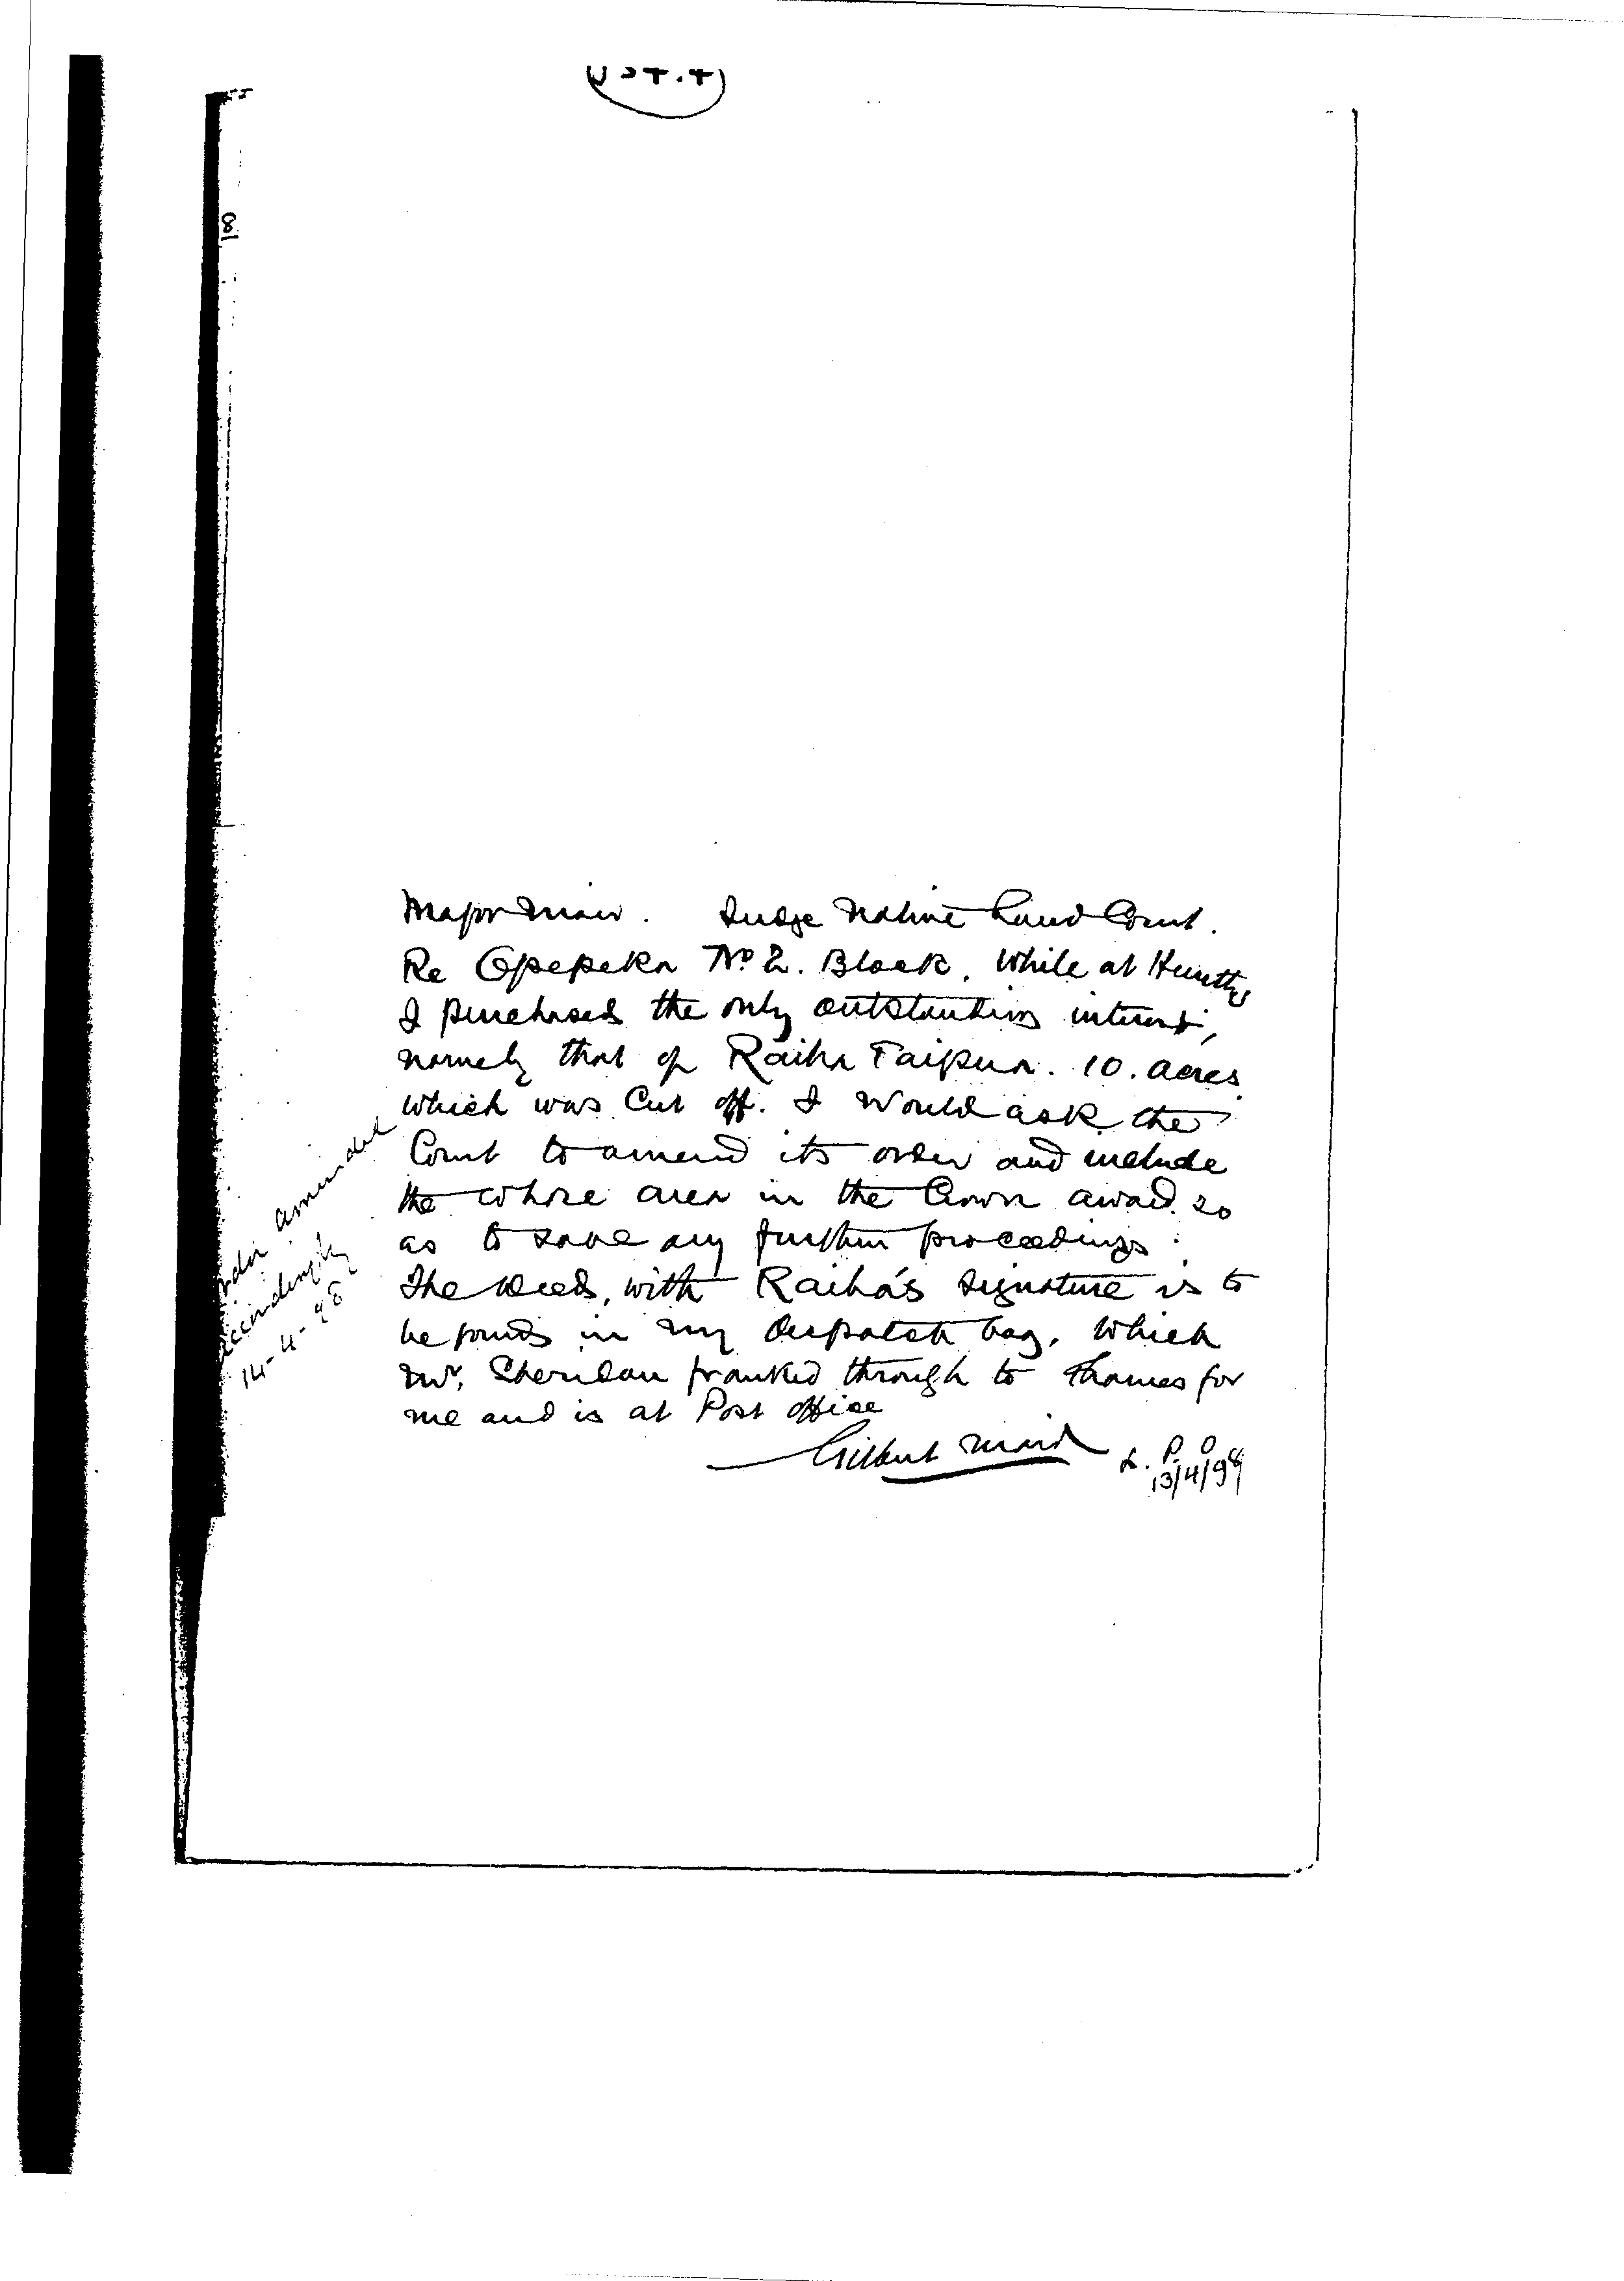 8
Major Mair. Judge Native Land Court.
Re Opepeka No 2. Block. While at Huntly
I purchased the only outstanding interest,
namely that of Raiha Taipua. 10. acres
which was cut off. I would ask the
Court to amend its order and include
the whole area in the Crown award so
as to save any further proceedings.
The deed, with Raiha's signature is to
be found in my despatch bag, which
Mr. Sheridan franked through to Thames for
me and is at Post office
Gilbert Mair L. P. O
13/4/98
amended
accordingly
14-4-98